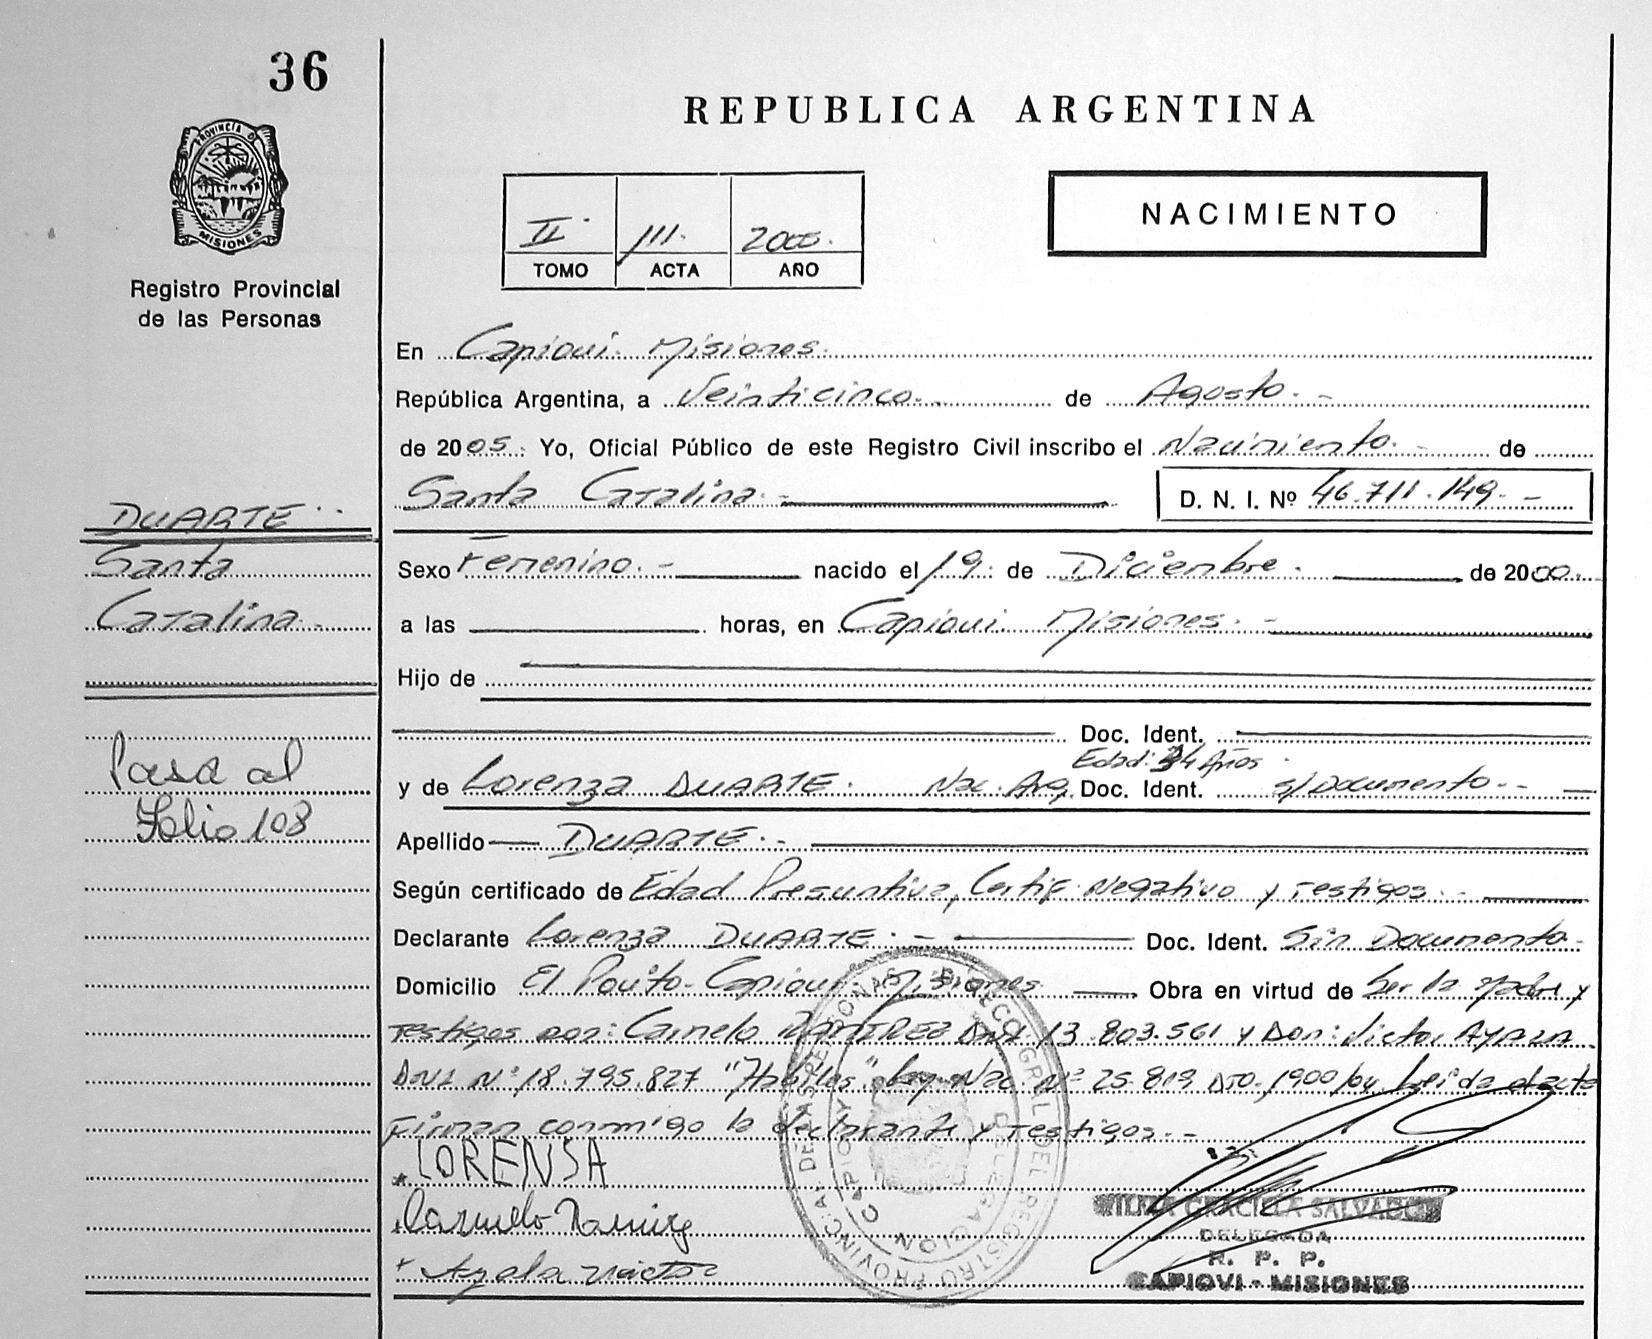 36
REPUBLICA ARGENTINA
PROVINCIA DE
MISIONES
Registro Provincial
de las Personas
II 111. 2000.
TOMO ACTA AÑO
NACIMIENTO
En Capiovi. Misiones.
República Argentina, a Veinticinco. de Agosto.
de 2005. Yo, Oficial Público de este Registro Civil inscribo el Nacimiento. de
Santa Catalina. D. N. I. Nº 46.711.149.
DUARTE
Santa
Catalina.
Sexo Femenino. nacido el 19. de Diciembre. de 2000.
a las horas, en Capiovi. Misiones.
Hijo de
Doc. Ident.
Edad: 34 Años
y de Lorenza DUARTE. Nac. Arg. Doc. Ident. s/Documento.
Pasa al
Folio 108
Apellido DUARTE.
Según certificado de Edad Presuntiva, Certif. Negativo y Testigos.
Declarante Lorenza DUARTE. Doc. Ident. Sin Documento.
Domicilio El Pocito-Capiovi Misiones Obra en virtud de Ser la Madre y
Testigos Don: Carmelo RAMIREZ DNI 13.803.561 y Don: Victor AYALA
DNI Nº 18.795.827 "Hábiles" Ley Nac. Nº 25.819 DTO. 1900/04 Leida el acta
Firman conmigo la declarante y Testigos.
LORENSA
Carmelo Ramirez
Ayala Victor
DIRECC. GRAL. DEL REGISTRO PROVINCIAL DE LAS PERSONAS
DELEGACION CAPIOVI
GRACIELA SALVADO
DELEGADA
R. P. P.
CAPIOVI - MISIONES